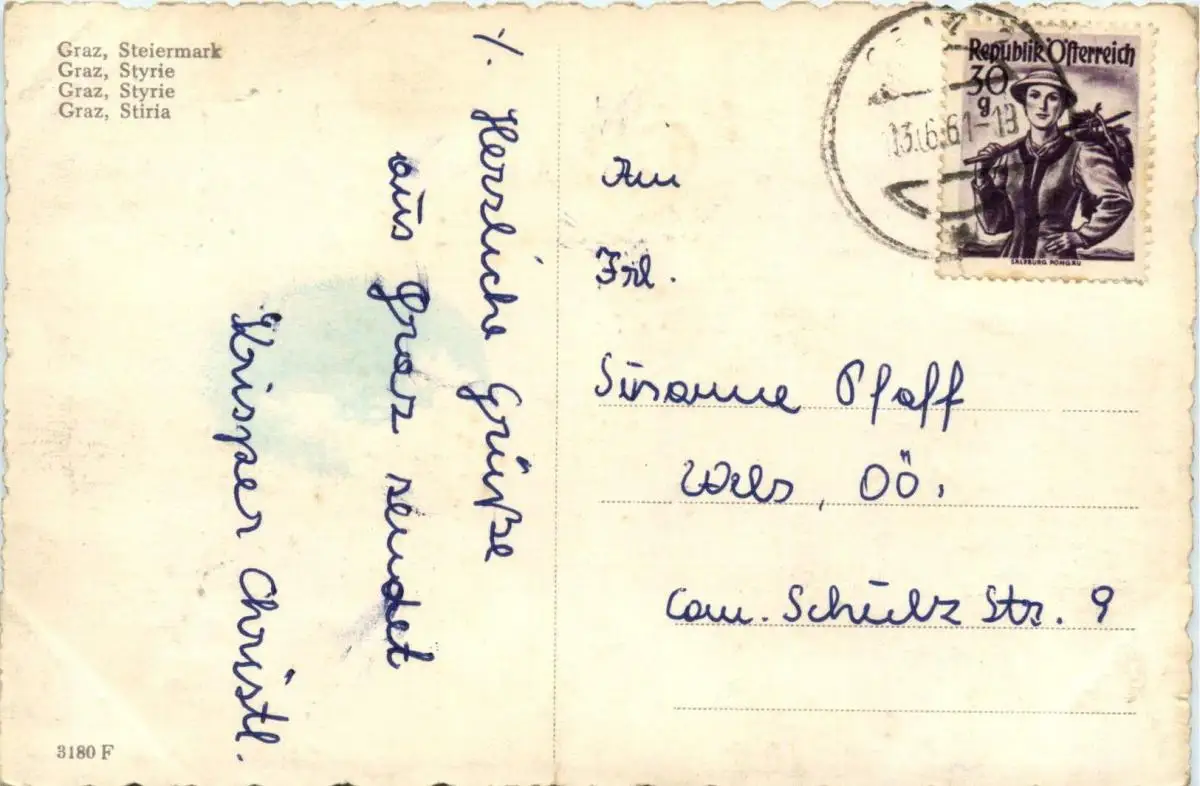 Graz, Steiermark
Graz, Styrie
Graz, Styrie
Graz, Stiria
./.
Herzliche Grüße
aus Graz sendet
Krisper Christl.
3180 F
Republik Österreich
30
g
SALZBURG PONGAU
13.6.61-18
An
Frl.
Susanne Pfaff
Wels, OÖ.
Cam. Schulz Str. 9